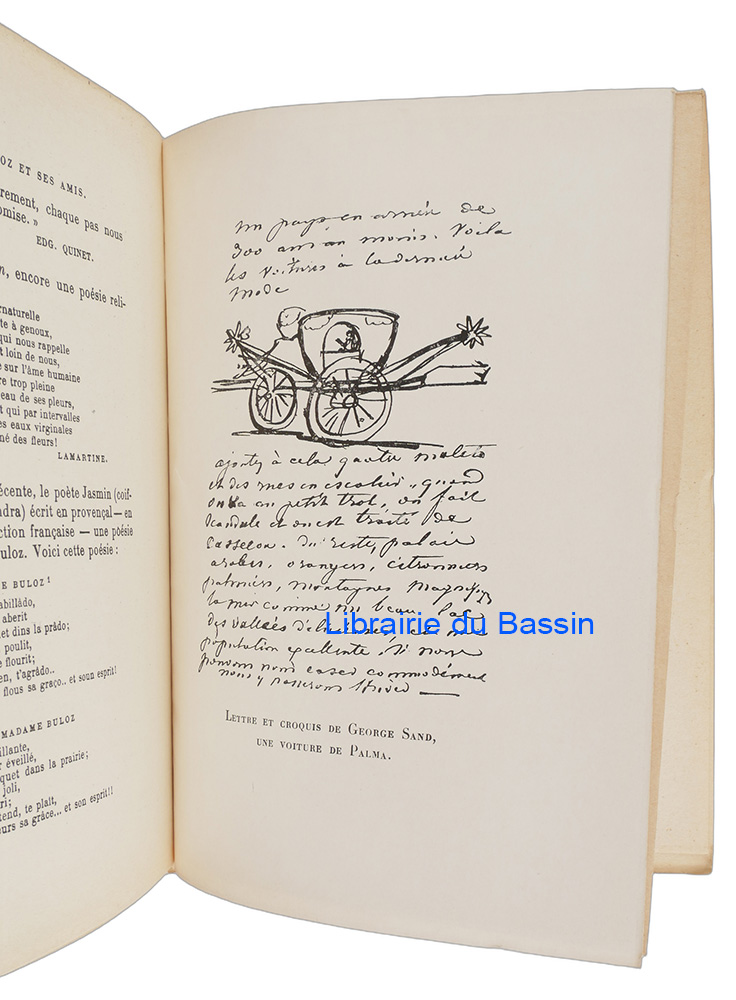 OZ ET SES AMIS.
rement, chaque pas nous
omise. »
EDG. QUINET.
n, encore une poésie reli-
rnaturelle
te à genoux,
qui nous rappelle
t loin de nous,
e sur l'âme humaine
re trop pleine
eau de ses pleurs,
t qui par intervalles
es eaux virginales
né des fleurs!
LAMARTINE.
écente, le poète Jasmin (coif-
ndra) écrit en provençal — en
ction française — une poésie
uloz. Voici cette poésie :
E BULOZ¹
abillâdo,
aberit
et dins la prâdo;
poulit,
e flourit;
en, t'agrâdo..
flous sa graço.. et soun esprit!
MADAME BULOZ
illante,
r éveillé,
quet dans la prairie;
joli,
ri;
tend, te plaît,
eurs sa grâce... et son esprit!!
un pays en arrière de
300 ans au moins. Voila
les voitures à la dernière
mode
ajoutez à cela quatre mulets
et des rues en escalier, quand
on va au petit trot, on fait
scandale et on est traité de
casse cou. Du reste, palais
arabes, orangers, citronniers
palmiers, montagnes magnifiqs
la mer comme un beau lac
des vallées et une
population excellente, si nous
pouvons nous caser commodément
nous y passerons l'hiver —
LETTRE ET CROQUIS DE GEORGE SAND,
UNE VOITURE DE PALMA.
Librairie du Bassin